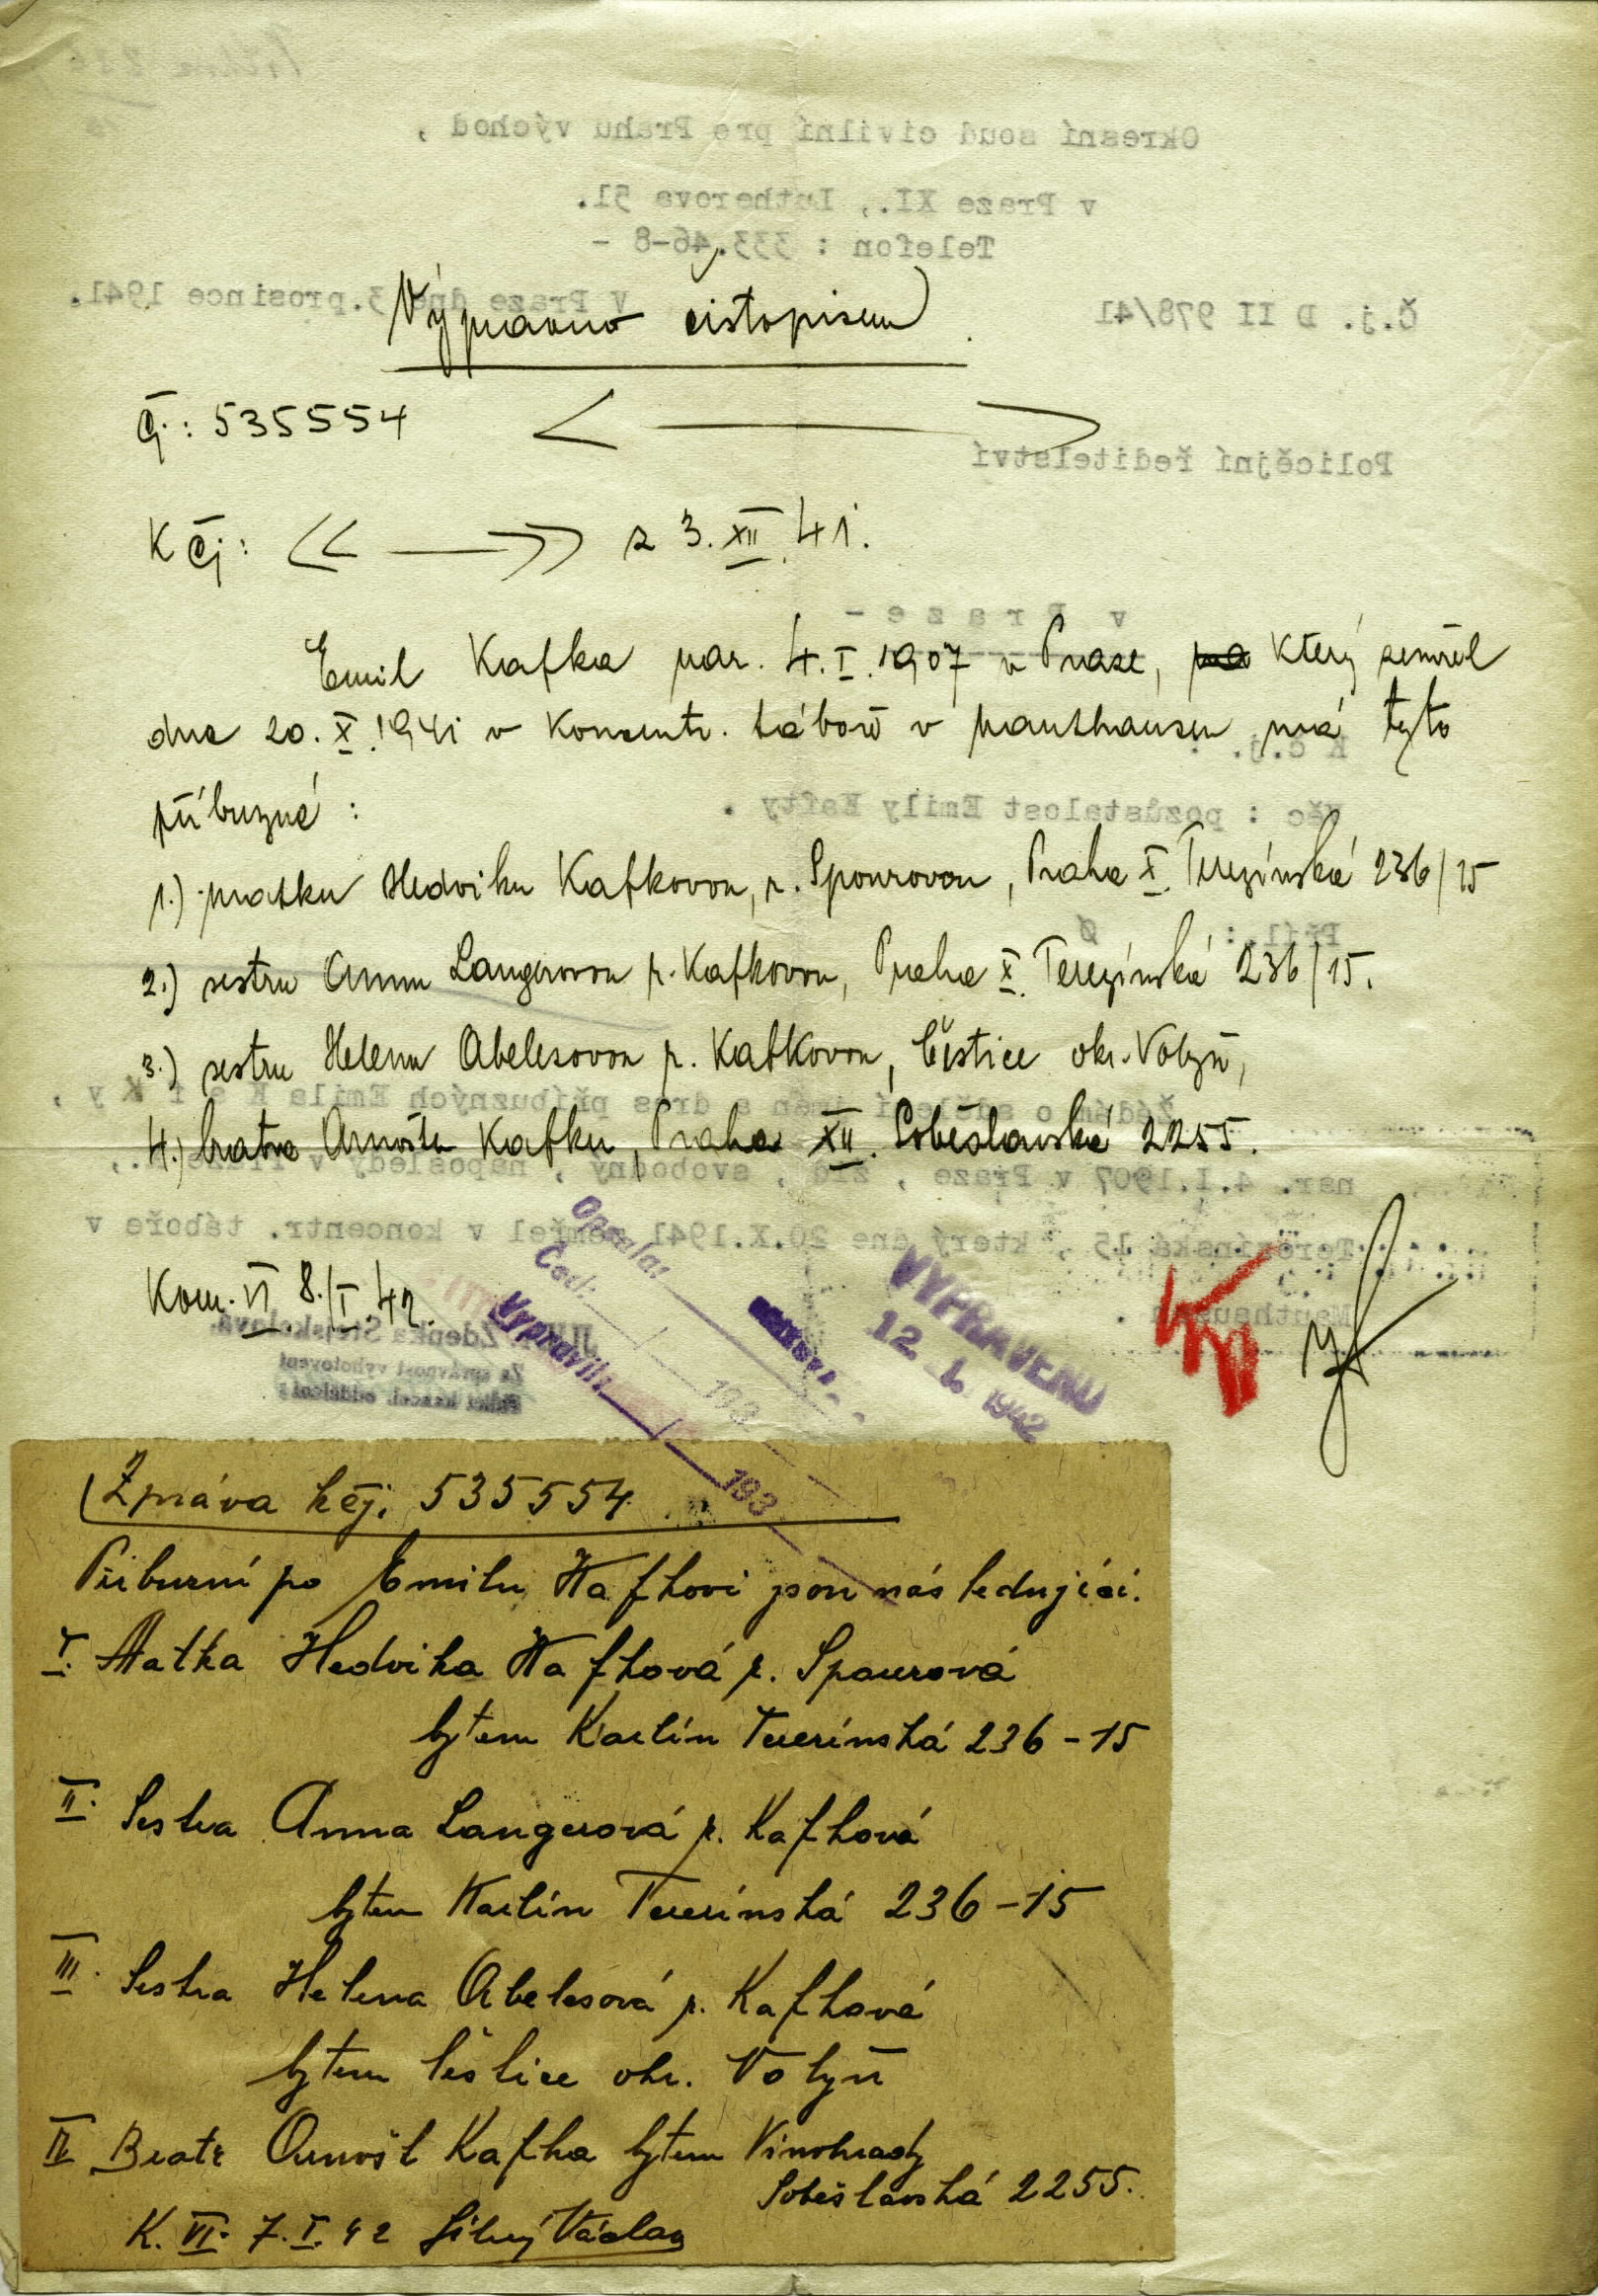 Okresní soud civilní pro Prahu východ ,
v Praze XI., Lutherova 51.
Telefon : 333.46-8 -
V Praze dne 3.prosince 1941.
Č.j. D II 978/41
Výpravno čistopisem
Čj.: 535554
Policejní ředitelství
K Čj: z 3. XII. 41.
v P r a z e -
Emil Kafka nar. 4. I. 1907 v Praze, který zemřel
dne 20. X. 1941 v koncentr. táboře v Mauthausen má tyto
K č.j. :
příbuzné :
Věc : pozůstalost Emily Kafky .
1.) matku Hedviku Kafkovou, r. Spourovou, Praha X. Terezínská 236/15
Příl.: Ø
2.) sestru Annu Langerovou r. Kafkovou, Praha X. Terezínská 236/15.
3.) sestru Helenu Abelesovou r. Kafkovou, Čestice okr. Volyň,
Žádám o sdělení jmén a adres příbuzných Emila K a f k y ,
4.) bratra Arnošta Kafku, Praha XII. Soběslavská 2255.
nar. 4.I.1907 v Praze , žid , svobodný , naposledy v Praze
Terezínská 15 , který dne 20.X.1941 zemřel v koncentr. táboře v
Mauthausen .
Kom. VI 8./I. 42.
Opsala:
Čed:
193
Vypravil:
193
VYPRAVENO
12. I. 1942
Zdenka
Za správnost vyhotovení
Zpráva kčj. 535554
Příbuzní po Emilu Kafkovi jsou následující.
I. Matka Hedvika Kafková r. Spaurová
bytem Karlín Terezínská 236-15
II. Sestra Anna Langerová r. Kafková
bytem Karlín Terezínská 236-15
III. Sestra Helena Abelesová r. Kafková
bytem Čestice okr. Volyň
IV Bratr Arnošt Kafka bytem Vinohrady
Soběslavská 2255.
K. VI. 7. I. 42 Václav